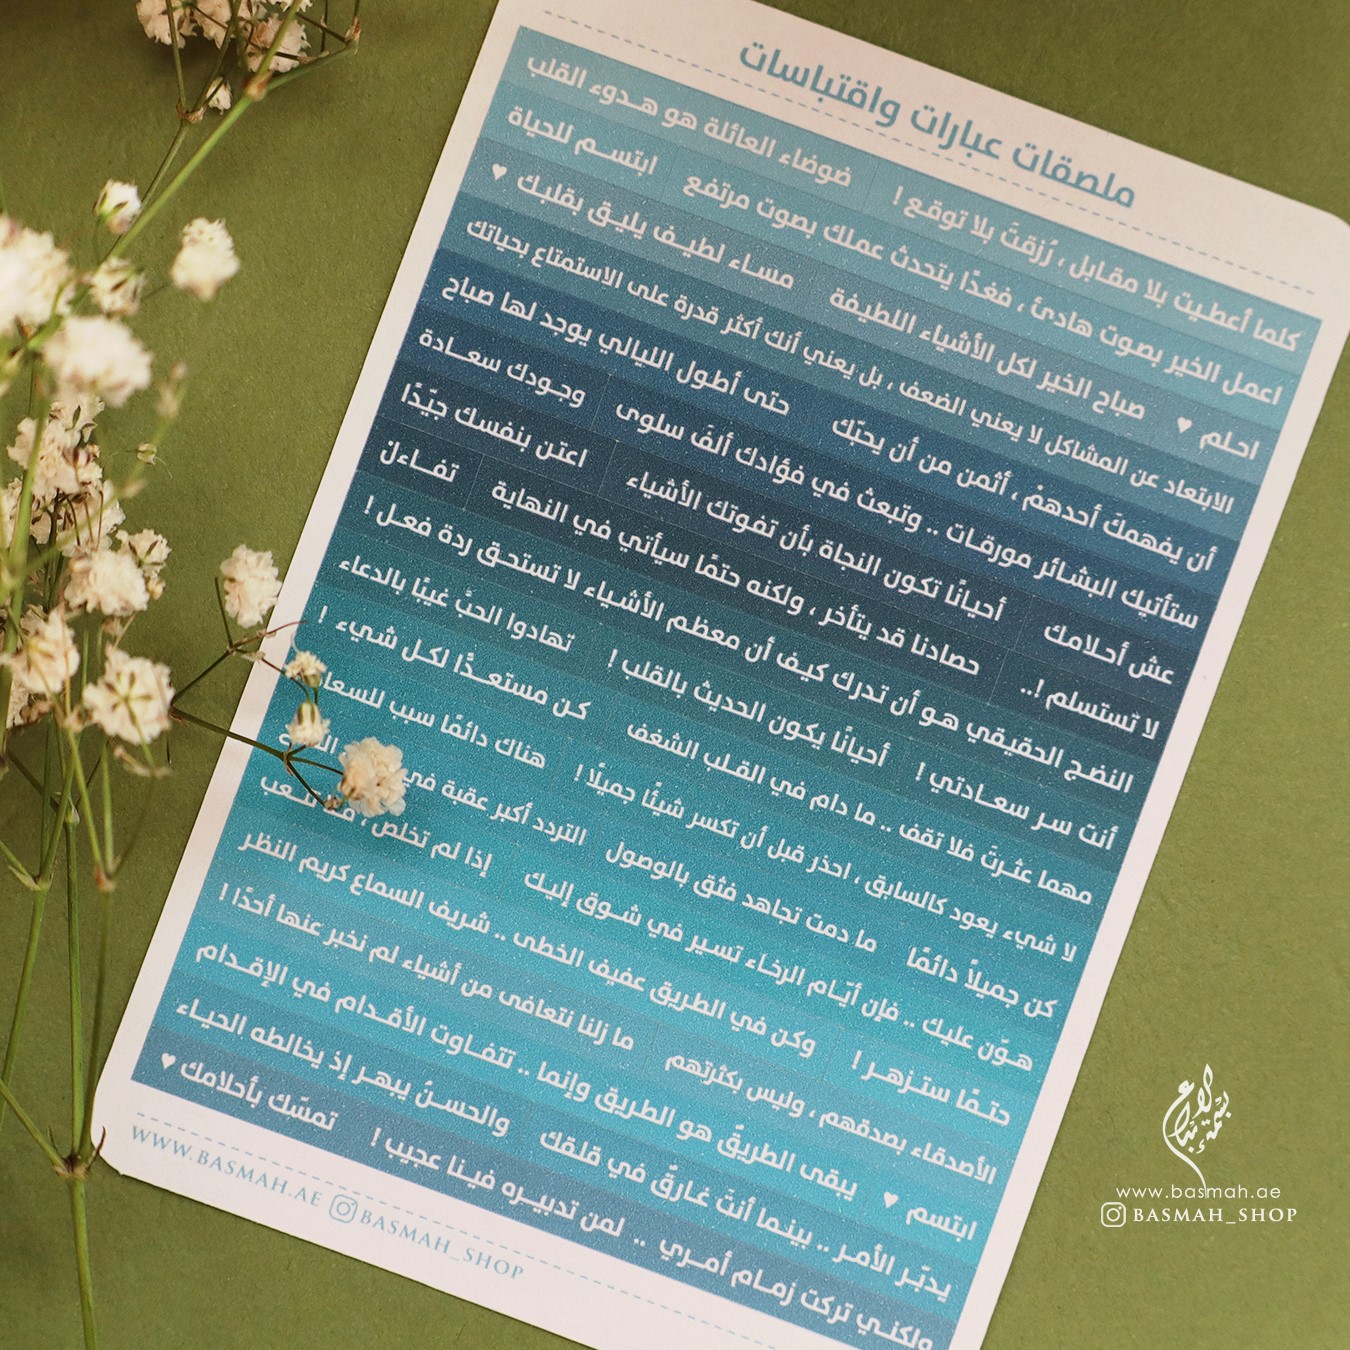 ملصقات عبارات واقتباسات
كلما أعطيت بلا مقابل ، رُزقتَ بلا توقع ! ضوضاء العائلة هو هـدوء القلب
اعمل الخير بصوت هادئ ، فغدًا يتحدث عملك بصوت مرتفع ابتسـم للحياة
احلم ♥ صباح الخير لكل الأشياء اللطيفة مساء لطيف يليق بقلبك ♥
الابتعاد عن المشاكل لا يعني الضعف ، بل يعني أنك أكثر قدرة على الاستمتاع بحياتك
أن يفهمكَ أحدهمْ ، أثمن من أن يحبّك حتى أطول الليالي يوجد لها صباح
ستأتيك البشائر مورقات .. وتبعث في فؤادك ألفَ سلوى وجـودك سعـادة
عش أحلامك أحيانًا تكون النجاة بأن تفوتك الأشياء اعتن بنفسك جيّدًا
لا تستسلم !.. حصادنا قد يتأخر ، ولكنه حتمًا سيأتي في النهاية تفـاءل
النضج الحقيقي هو أن تدرك كيف أن معظم الأشياء لا تستحق ردة فعل !
أنت سر سعـادتي ! أحيانًا يكون الحديث بالقلب ! تهادوا الحبَّ غيبًا بالدعاء
مهما عثرتَ فلا تقف .. ما دام في القلب الشغف كـن مستعـدًّا لكـل شيء !
لا شيء يعود كالسابق ، احذر قبل أن تكسر شيئًا جميلًا ! هناك دائمًا سبب للسعا
كن جميلاً دائمًا ما دمت تجاهد فثق بالوصول التردد أكبر عقبة في
هـوّن عليك .. فإن أيّـام الرخـاء تسـير في شـوق إليـك إذا لم تخلص ،
حتـمًا ستـزهـر ! وكن في الطريق عفيف الخطى .. شريف السماع كريم النظر
الأصدقاء بصدقهم ، وليس بكثرتهم ما زلنا نتعافى من أشياء لم نخبر عنها أحدًا !
ابتسم ♥ يبقى الطريقُ هو الطريق وإنما .. تتفـاوت الأقـدام في الإقـدام
يدبّر الأمـر .. بينـما أنتَ غـارقٌ في قلقك والحسـنُ يبهـر إذ يخالطه الحيـاء
ولكنـي تركت زمـام أمـري .. لمن تدبيـره فينـا عجيب ! تمسّك بأحلامك ♥
WWW.BASMAH.AE BASMAH_SHOP
www.basmah.ae
BASMAH_SHOP